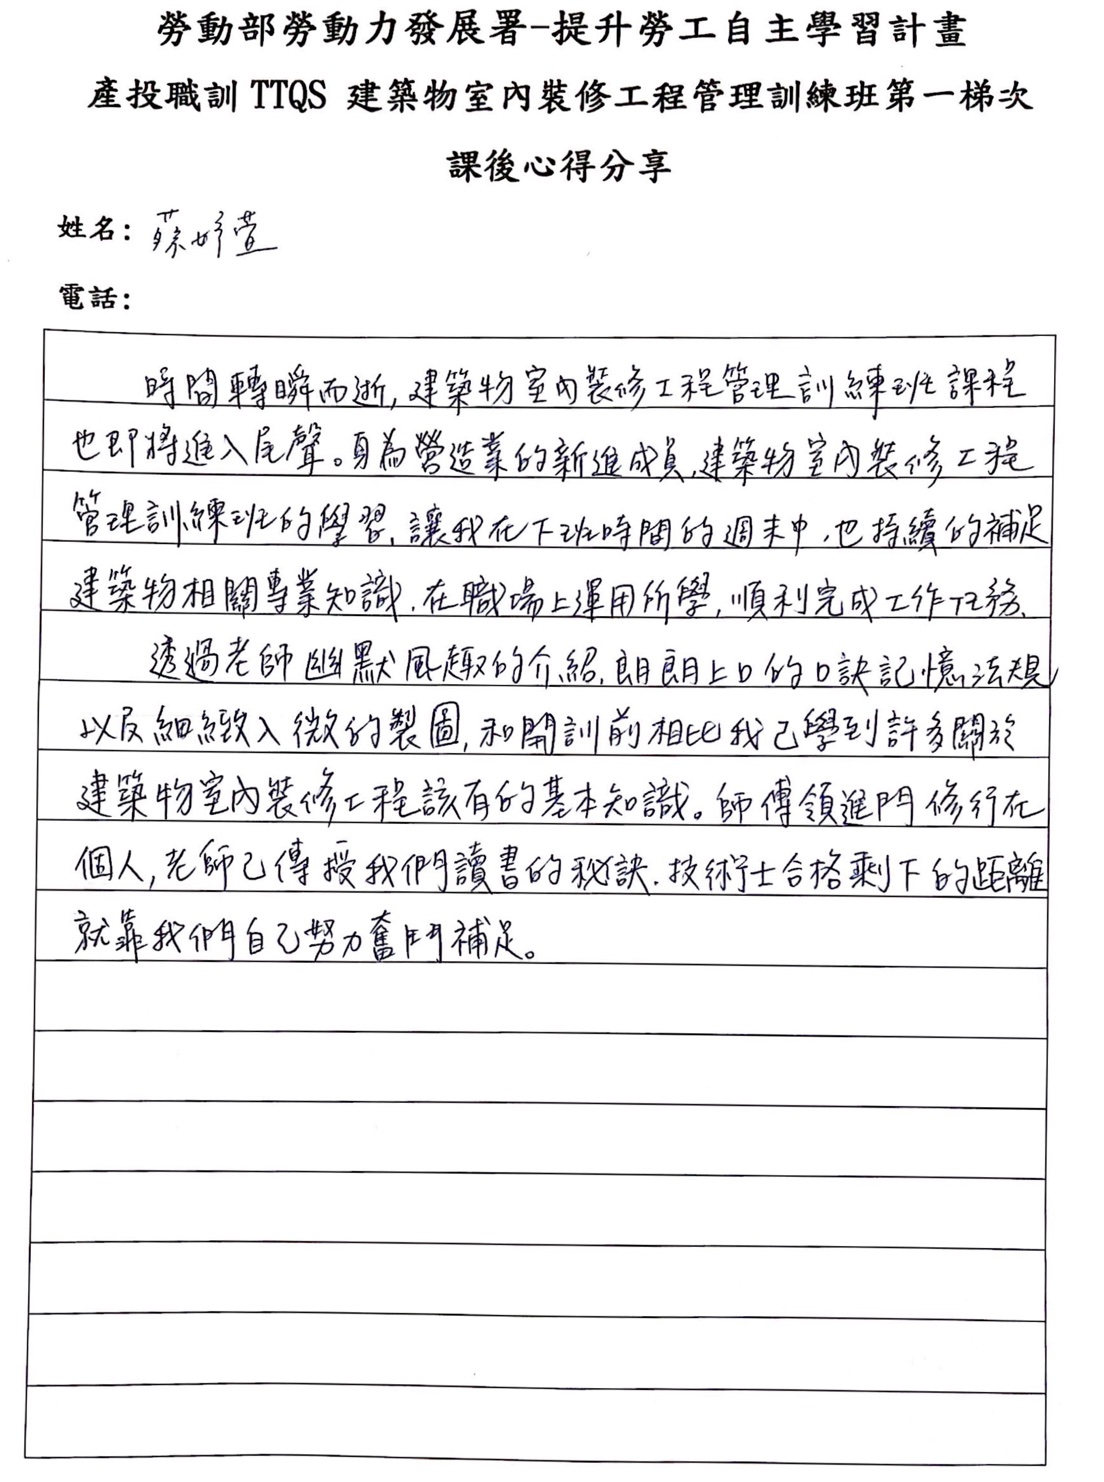 勞動部勞動力發展署-提升勞工自主學習計畫
產投職訓 TTQS 建築物室內裝修工程管理訓練班第一梯次
課後心得分享
姓名：蔡妤萱
電話：
時間轉瞬而逝,建築物室內裝修工程管理訓練班課程
也即將進入尾聲。身為營造業的新進成員,建築物室內裝修工程
管理訓練班的學習,讓我在下班時間的週末中,也持續的補足
建築物相關專業知識,在職場上運用所學,順利完成工作任務、
透過老師幽默風趣的介紹,朗朗上口的口訣記憶法規
以及細緻入微的製圖,和開訓前相比我已學到許多關於
建築物室內裝修工程該有的基本知識。師傅領進門修行在
個人,老師已傳授我們讀書的秘訣,技術士合格剩下的距離
就靠我們自己努力奮鬥補足。